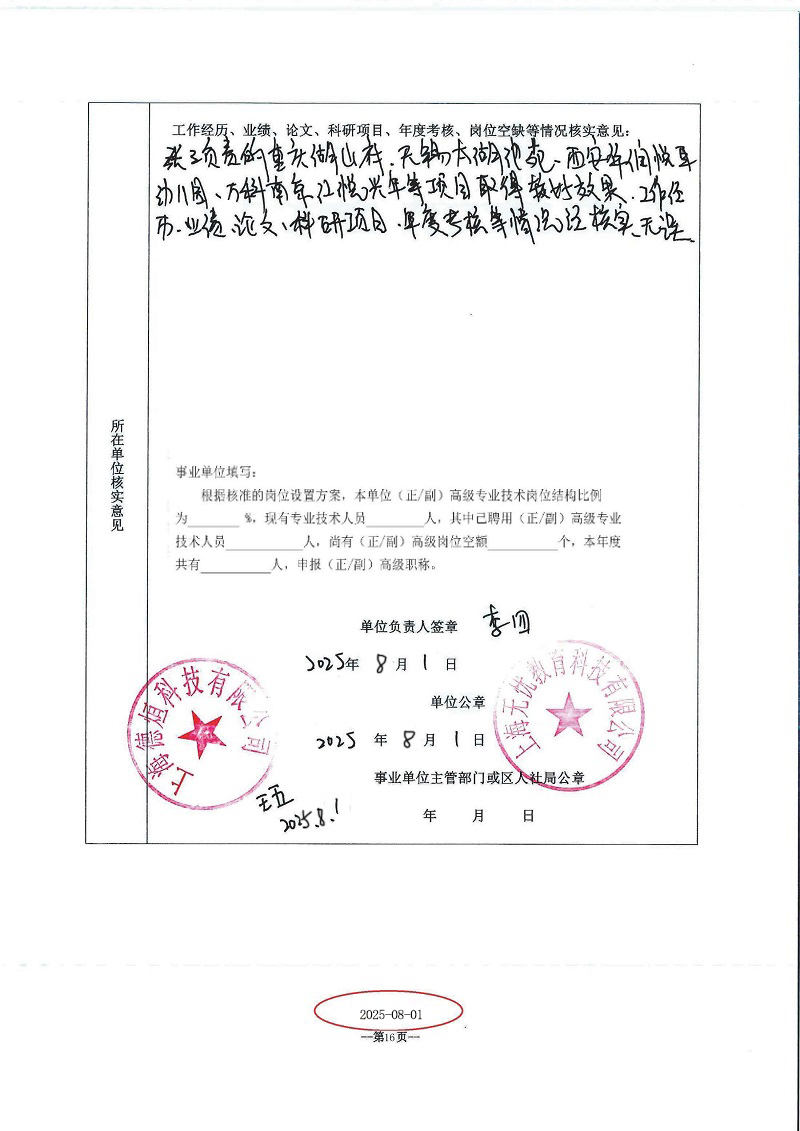 工作经历、业绩、论文、科研项目、年度考核、岗位空缺等情况核实意见:
张三负责的重庆湖山村、无锡太湖、西安华润悦府
幼儿园、万科南京江悦兴年等项目取得较好效果、工作经
历、业绩、论文、科研项目、年度考核等情况经核实、无误。
所在单位核实意见
事业单位填写:
根据核准的岗位设置方案,本单位(正/副)高级专业技术岗位结构比例
为________%,现有专业技术人员________人,其中已聘用(正/副)高级专业
技术人员________人,尚有(正/副)高级岗位空额________个,本年度
共有________人,申报(正/副)高级职称。
单位负责人签章 李四
2025年 8月 1日
单位公章
2025 年 8月 1日
事业单位主管部门或区人社局公章
年 月 日
上海德垣科技有限公司
上海无忧教育科技有限公司
王五
2025.8.1
2025-08-01
—第16页—